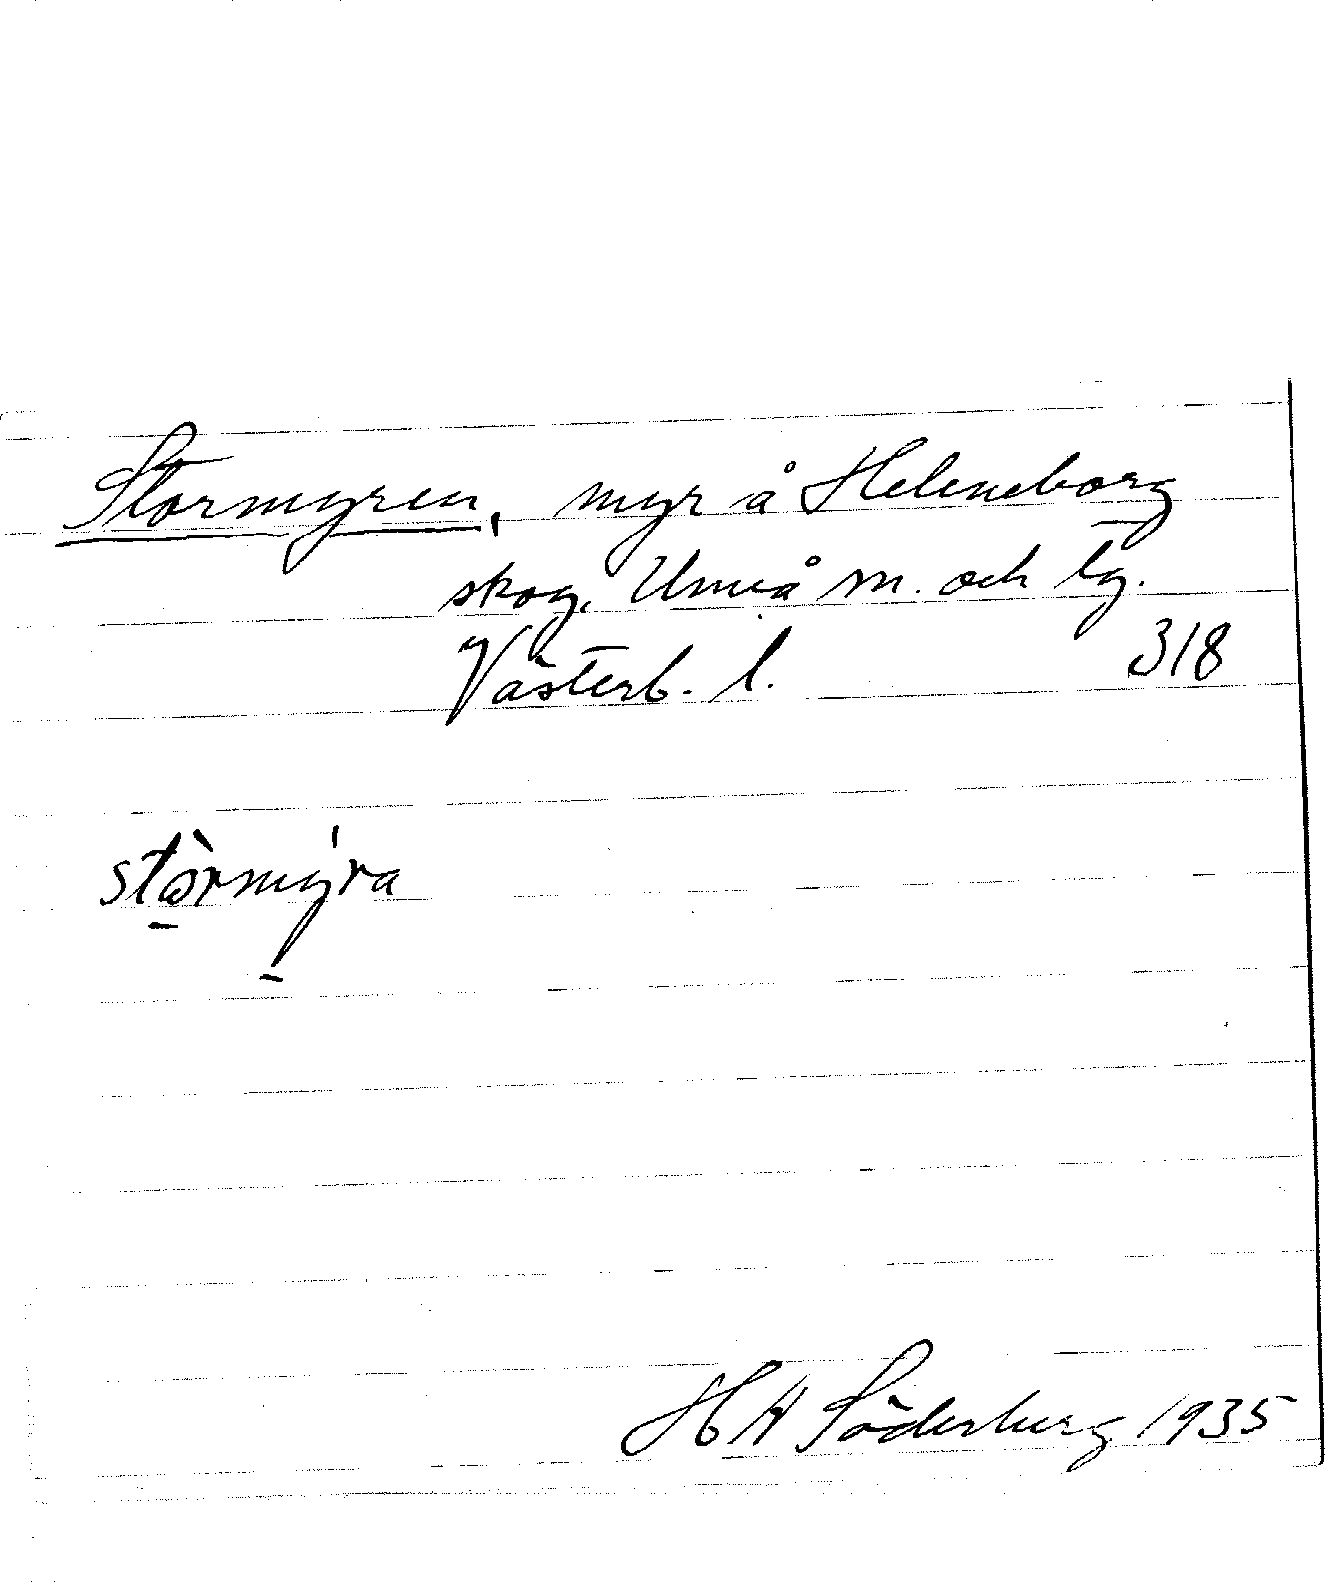 Stormyren, myr å Heleneborg
skog, Umeå m. och lg.
Västerb. l. 318
stòrmýra
H A Söderberg 1935